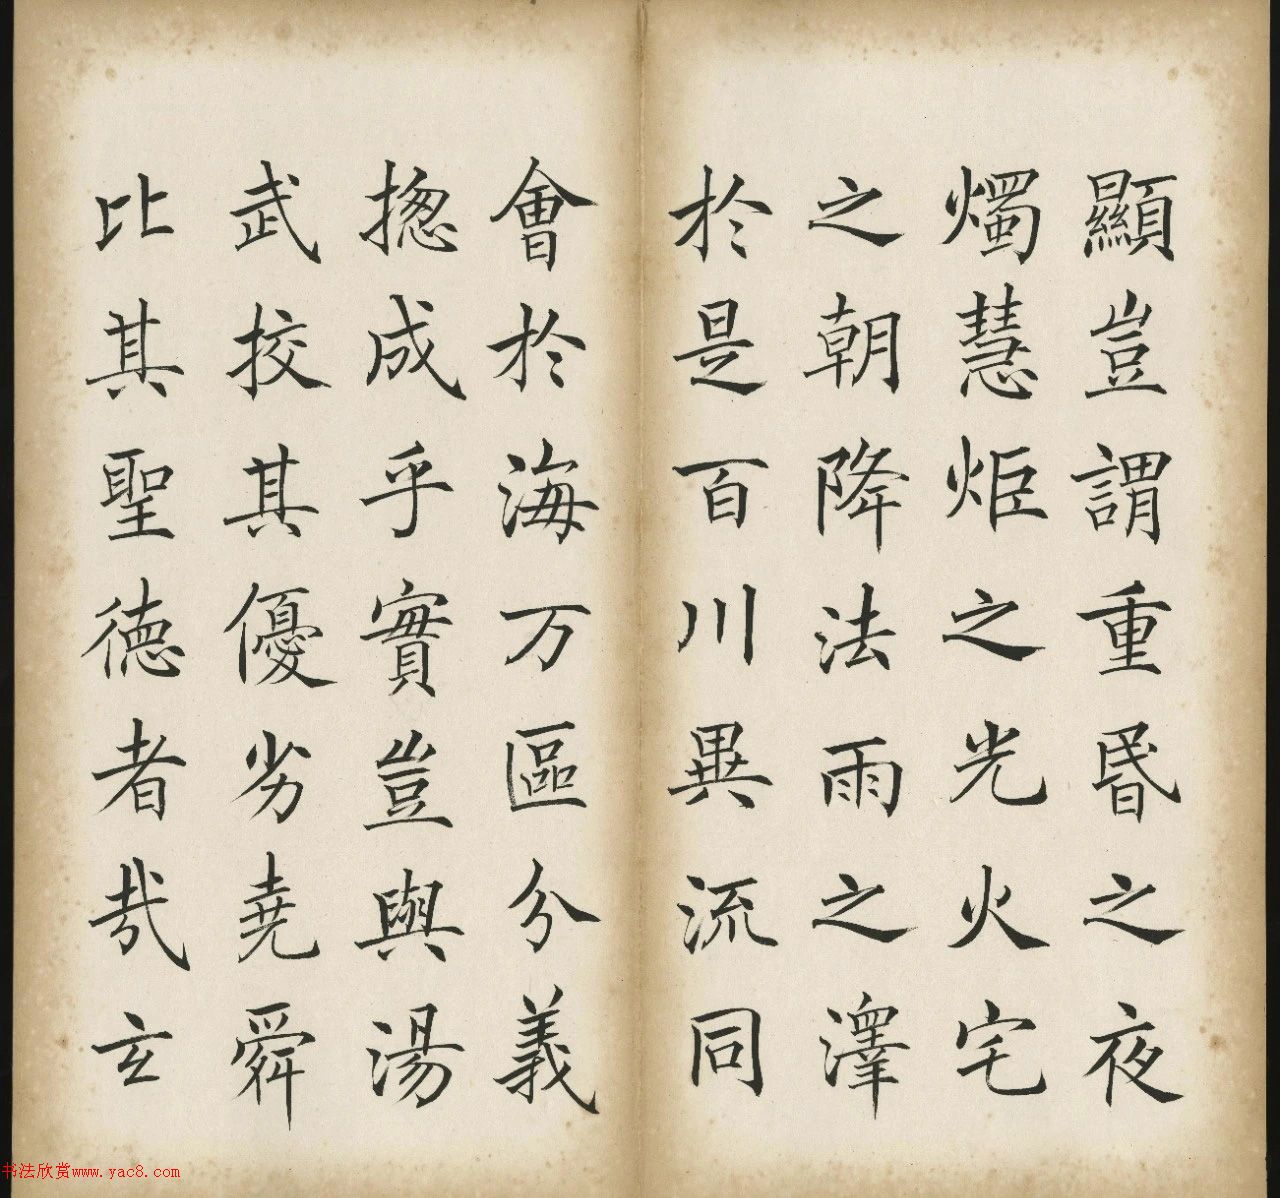 顯豈謂重昬之夜
燭慧炬之光火宅
之朝降法雨之澤
於是百川異流同
會於海万區分義
揔成乎實豈與湯
武挍其優劣堯舜
比其聖德者哉玄
书法欣赏www.yac8.com